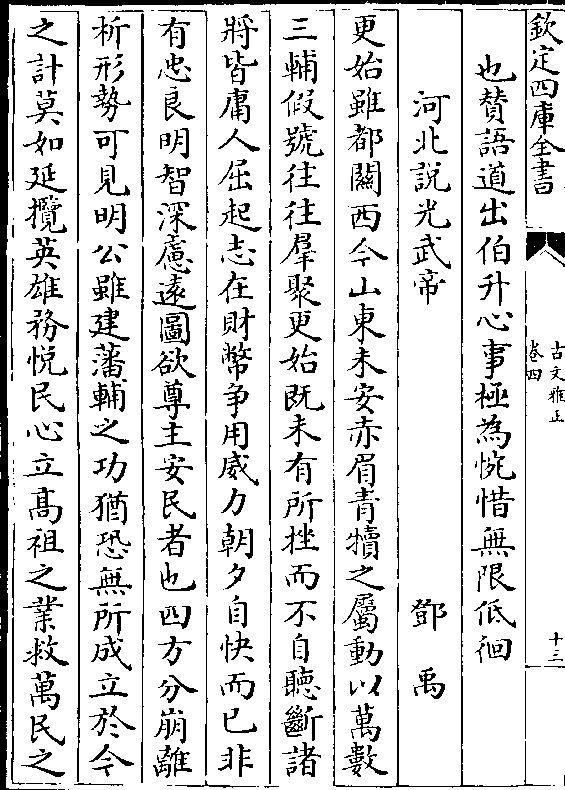 欽定四庫全書
古文雅正
卷四
十三
也贊語道出伯升心事極為惋惜無限低徊
河北說光武帝 鄧禹
更始雖都關西今山東未安赤眉青犢之屬動以萬數
三輔假號往往羣聚更始既未有所挫而不自聽斷諸
將皆庸人屈起志在財幣爭用威力朝夕自快而已非
有忠良明智深慮遠圖欲尊主安民者也四方分崩離
析形勢可見明公雖建藩輔之功猶恐無所成立於今
之計莫如延攬英雄務悅民心立高祖之業救萬民之